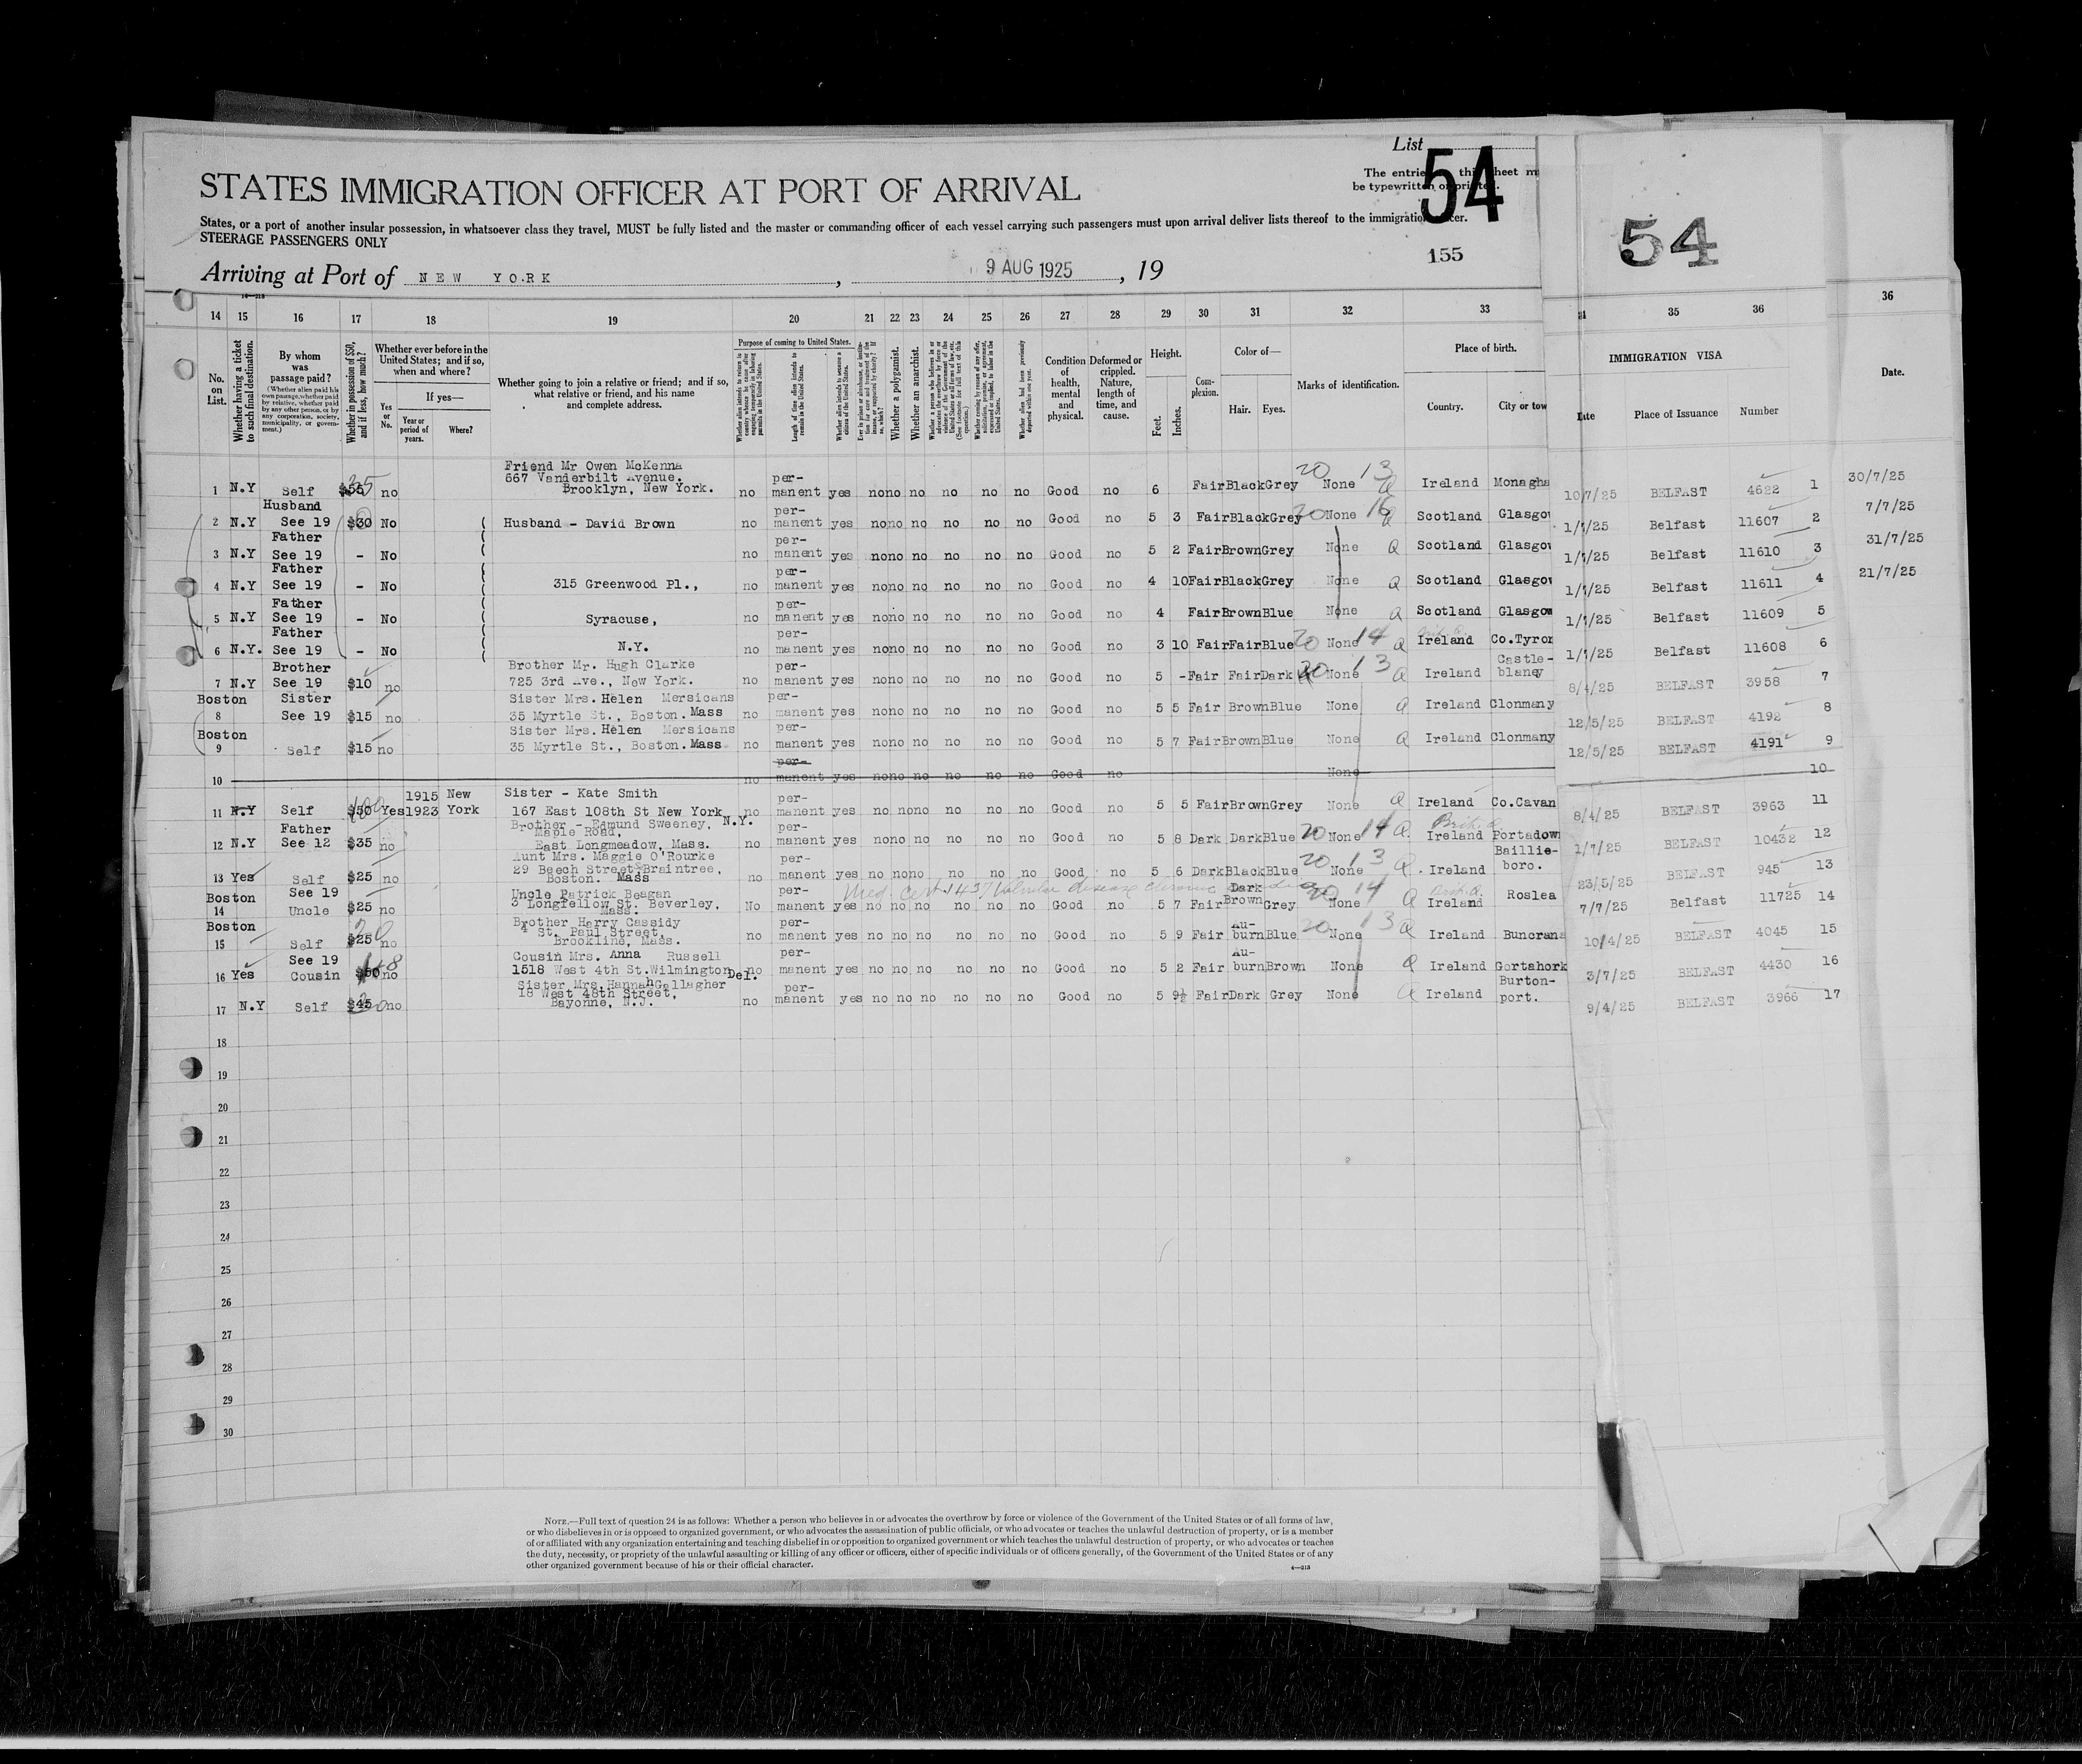 List
54
The entrie this sheet m
be typewritten or printed.
STATES IMMIGRATION OFFICER AT PORT OF ARRIVAL
States, or a port of another insular possession, in whatsoever class they travel, MUST be fully listed and the master or commanding officer of each vessel carrying such passengers must upon arrival deliver lists thereof to the immigration officer.
STEERAGE PASSENGERS ONLY
155
54
Arriving at Port of NEW YORK , 9 AUG 1925 , 19
14 15 16 17 18 19 20 21 22 23 24 25 26 27 28 29 30 31 32 33 35 36 36
No. on List.
Whether having a ticket to such final destination.
By whom was passage paid?
(Whether alien paid his own passage, whether paid by relative, whether paid by any other person, or by any corporation, society, municipality, or government.)
Whether in possession of $50, and if less, how much?
Whether ever before in the United States; and if so, when and where?
Yes or No.
If yes—
Year or period of years.
Where?
Whether going to join a relative or friend; and if so, what relative or friend, and his name and complete address.
Purpose of coming to United States.
Length of time alien intends to remain in the United States.
Whether a polygamist.
Whether an anarchist.
Condition of health, mental and physical.
Deformed or crippled. Nature, length of time, and cause.
Height.
Feet. Inches.
Complexion.
Color of—
Hair. Eyes.
Marks of identification.
Place of birth.
Country. City or tow
IMMIGRATION VISA
Place of Issuance Number
Date.
Friend Mr Owen McKenna
667 Vanderbilt Avenue.
Brooklyn, New York.
1 N.Y Self no no permanent yes no no no no no no Good no 6 Fair Black Grey None Ireland Monagha 10/7/25 BELFAST 4622 1 30/7/25
2 N.Y Husband See 19 $30 No Husband - David Brown no permanent yes no no no no no no Good no 5 3 Fair Black Grey None Scotland Glasgo 1/7/25 Belfast 11607 2 7/7/25
3 N.Y Father See 19 - No no permanent yes no no no no no no Good no 5 2 Fair Brown Grey None Scotland Glasgo 1/7/25 Belfast 11610 3 31/7/25
4 N.Y Father See 19 - No 315 Greenwood Pl., no permanent yes no no no no no no Good no 4 10 Fair Black Grey None Scotland Glasgo 1/7/25 Belfast 11611 4 21/7/25
5 N.Y Father See 19 - No Syracuse, no permanent yes no no no no no no Good no 4 Fair Brown Blue None Scotland Glasgow 1/7/25 Belfast 11609 5
6 N.Y. Father See 19 - No N.Y. no permanent yes no no no no no no Good no 3 10 Fair Fair Blue 20 None 14 Ireland Co.Tyron 1/7/25 Belfast 11608 6
Brother Mr. Hugh Clarke
7 N.Y Brother See 19 $10 no 725 3rd Ave., New York. no permanent yes no no no no no no Good no 5 - Fair Fair Dark None 13 Ireland Castleblaney 8/4/25 BELFAST 3958 7
Sister Mrs. Helen Mersicans
8 Boston Sister See 19 $15 no 35 Myrtle St., Boston. Mass no permanent yes no no no no no no Good no 5 5 Fair Brown Blue None Ireland Clonmany 12/5/25 BELFAST 4192 8
Sister Mrs. Helen Mersicans
9 Boston Self $15 no 35 Myrtle St., Boston. Mass no permanent yes no no no no no no Good no 5 7 Fair Brown Blue None Ireland Clonmany 12/5/25 BELFAST 4191 9
10 no permanent yes no no no no no no Good no None 10
Sister - Kate Smith
11 N.Y Self $50 Yes 1915 1923 New York 167 East 108th St New York, N.Y. no permanent yes no no no no no no Good no 5 5 Fair Brown Grey None Ireland Co.Cavan 8/4/25 BELFAST 3963 11
Brother - Edmund Sweeney,
Maple Road,
12 N.Y Father See 12 $35 no East Longmeadow, Mass. no permanent yes no no no no no no Good no 5 8 Dark Dark Blue 20 None 14 Ireland Portadow 1/7/25 BELFAST 10432 12
Aunt Mrs. Maggie O'Rourke
29 Beech Street, Braintree,
13 Yes Self $25 no Boston. Mass no permanent yes no no no no no no Good no 5 6 Dark Black Blue 20 None 13 Ireland Baillieboro. 23/5/25 BELFAST 945 13
Med. Cert. 1437 Valvular disease
Uncle Patrick Beagan
3 Longfellow St. Beverley,
14 Boston See 19 Uncle $25 no Mass. No permanent yes no no no no no no Good no 5 7 Fair Dark Brown Grey None 14 Ireland Roslea 7/7/25 Belfast 11725 14
Brother Harry Cassidy
4 St. Paul Street,
15 Boston Self $25 no Brookline, Mass. no permanent yes no no no no no no Good no 5 9 Fair Auburn Blue 20 None 13 Ireland Buncrana 10/4/25 BELFAST 4045 15
Cousin Mrs. Anna Russell
16 Yes See 19 Cousin $50 no 1518 West 4th St. Wilmington Del. no permanent yes no no no no no no Good no 5 2 Fair Auburn Brown None Ireland Gortahork 3/7/25 BELFAST 4430 16
Sister Mrs. Hannah Gallagher
18 West 48th Street,
17 N.Y Self $45 no Bayonne, N.J. no permanent yes no no no no no no Good no 5 9½ Fair Dark Grey None Ireland Burtonport. 9/4/25 BELFAST 3966 17
18
19
20
21
22
23
24
25
26
27
28
29
30
NOTE.—Full text of question 24 is as follows: Whether a person who believes in or advocates the overthrow by force or violence of the Government of the United States or of all forms of law,
or who disbelieves in or is opposed to organized government, or who advocates the assassination of public officials, or who advocates or teaches the unlawful destruction of property, or is a member
of or affiliated with any organization entertaining and teaching disbelief in or opposition to organized government or which teaches the unlawful destruction of property, or who advocates or teaches
the duty, necessity, or propriety of the unlawful assaulting or killing of any officer or officers, either of specific individuals or of officers generally, of the Government of the United States or of any
other organized government because of his or their official character.